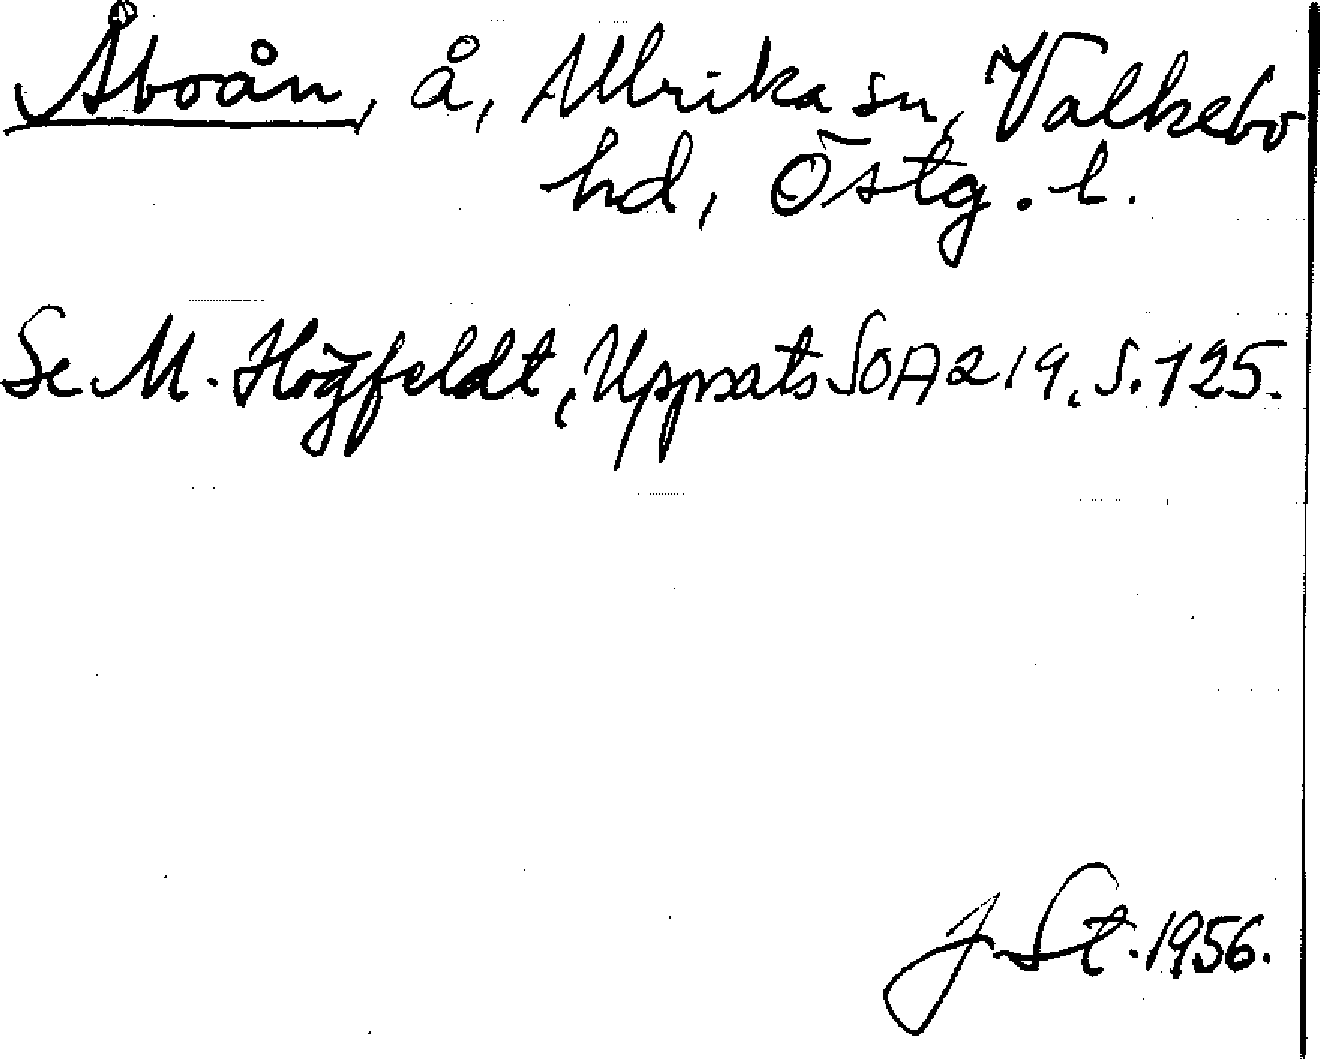 Åboån, å, Ulrika sn, Valkebo
hd, Östg. l.
Se M. Högfeldt, Uppsats SOA 219, s. 125.
J St. 1956.